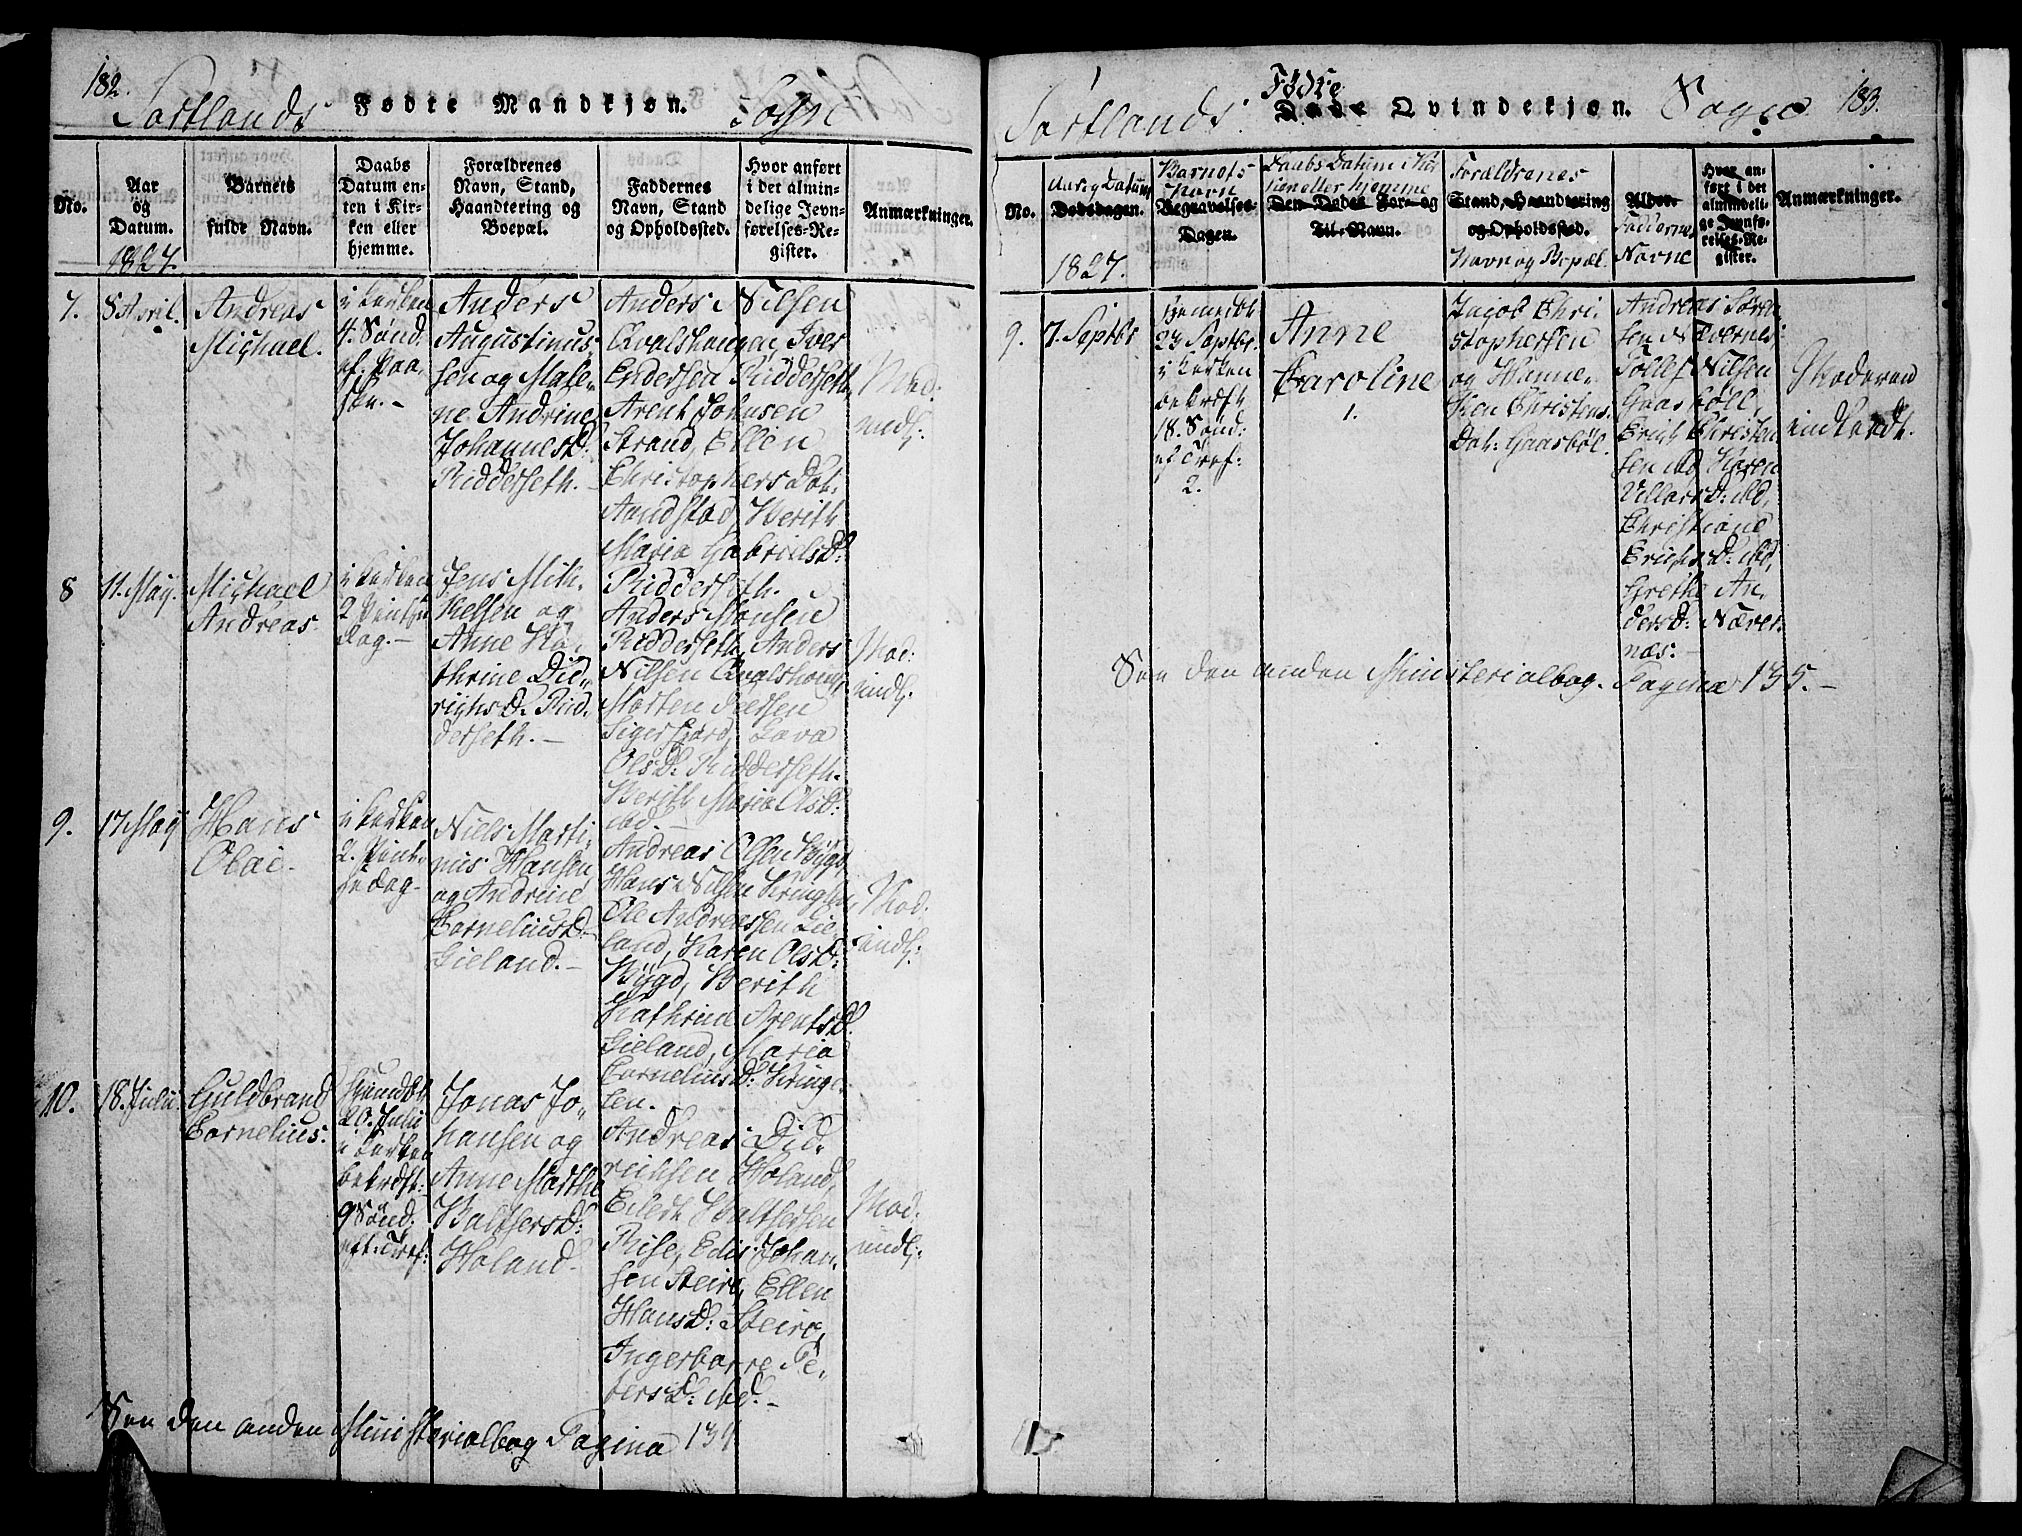 182.
Sortlands Fødte Mandkjøn. Sogn
No.
Aar
og
Datum.
1827.
Barnets
fulde Navn.
Daabs
Datum en-
ten i Kir-
ken eller
hjemme.
Forældrenes
Navn, Stand,
Haandtering og
Boepæl.
Faddernes
Navn, Stand
og Opholdssted.
Hvor anført
i det almin-
delige Jevn-
førelses-Re-
gister.
Anmærkninger.
7.
8 April.
Andreas
Michael.
i Kirken
4. Sönd.
ef. Paa-
ske.-
Anders
Augustinus-
sen og Male-
ne Andrine
Johannesd:
Ridderseth.
Anders Nilsen
Qvalshougen, Iver
Endersen Ridderseth,
Arent Johnsen
Strand, Ellen
Christophers Dat:
Aandstad, Berith
Maria Gabrielsd:
Ridderseth.
Mod:
indl:
8
11. May.
Michael
Andreas.
i Kirken
2 Pintse
dag.-
Jens Mik-
kelsen og
Anne Ka-
thrine Did-
richsd. Rid-
derseth.-
Anders Monsen
Ridderseth, Anders
Nilsen Qvalshoug,
Morten Peersen
Sigerfjord, Lava
Olsd: Ridderseth.
Berith Maria Olsd:
ibd.-
Mod:
indl:
9.
17 May
Hans
Olai.
i Kirken
2. Pint-
se dag-
Niels Marti-
nus Hansen
og Andrine
Corneliusd-
Lieland.-
Andreas Olsen Bÿgd,
Hans Nilsen Kringlen,
Ole Andreassen Lie-
land, Karen Olsd:
Bÿgd, Berith
Kathrine Arentsd.
Lieland, Maria
Corneliusd: Kringe-
len.
Mod:
indl:
10.
18. Julii
Guldbrand
Cornelius.
hjemdöbt
20. Julii
i Kirken
bekræft.
9 Sönd.
eft. Tref:
Jonas Jo-
hansen og
Anne Marthe
Balthersd:
Holand.
Andreas Did-
richsen Holand,
Eilert Balthersen
Rise, Edis Johan-
sen Steire, Ellen
Hansd: Steire,
Ingerborre Pe-
tersd: ibd.-
Mod:
indl:
See den anden Ministerialbog Pagina 134
Sortlands. Fødte Døde Qvindekjøn. Sogn 183.
No.
Aar og Datum
Dødsdagen.
1827.
Barnets
Navn
Begravelses-
Dagen.
Daabs Datum i Kir-
ken eller hjemme
Den Dødes For- og
Til-Navn.
Forældrenes
Stand, Haandtering
og Opholdssted.
Navn og Bopæl.
Alder.
Faddernes
Navne
Hvor an-
ført i det
almindeli-
ge Jevnfø-
relses-Re-
gister.
Anmærkninger.
9.
7. Septbr
hjemdöbt
24 Septbr.
i Kirken
bekræft
18. Sönd:
ef Tref:
2.
Anne
Caroline
1.
Jacob Chri-
stophersen
og Hanne-
ken Christens
Dat: Gaasböl.
Andreas Sören-
sen Nævernes:
Tollef Nilsen
Gaasböll,
Erich Christen
sen ibd, Karen
Villasd: ibd,
Christiane
Erichsd: ibd,
Grethe An-
dersd: Næver-
næs.-
Moderen
indledt.
See den anden Ministerialbog. Pagina 135.-